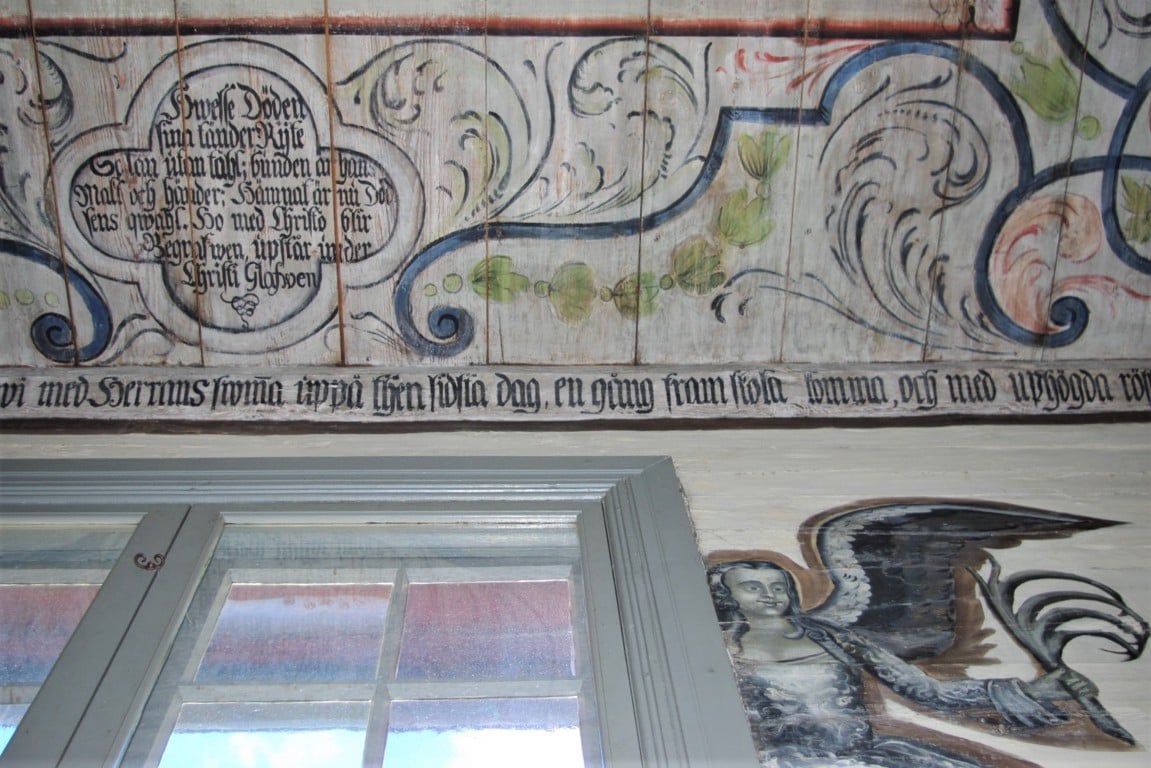 Hwesse Döden
sina tänder Ryse
Se'tan utan tahl; bunden är han
Makt och händer: Himmal är nå Död
sens qwahl. Ho med Christo blir
Begrafwen, upstår under
Christi Glafwen
wi med Herrans stemma uppå then sidsta dag, en gång fram skola komma, och med uphögda rös